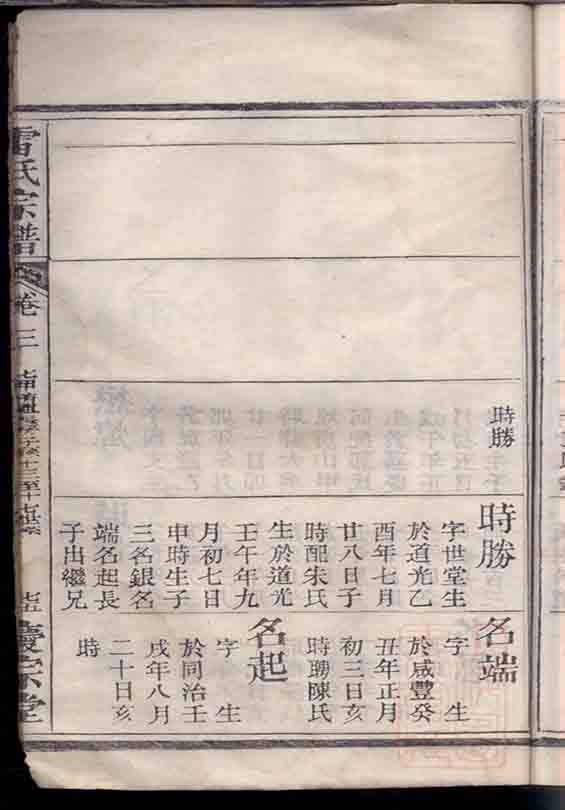 時勝
時勝
字世堂生
於道光乙
酉年七月
廿八日子
時配朱氏
生於道光
壬午年九
月初七日
申時生子
三名銀名
端名起長
子出繼兄
名端
字　生
於咸豐癸
丑年正月
初三日亥
時聘陳氏
名起
字　生
於同治壬
戌年八月
二十日亥
時
雷氏宗譜
卷三
慶宗堂